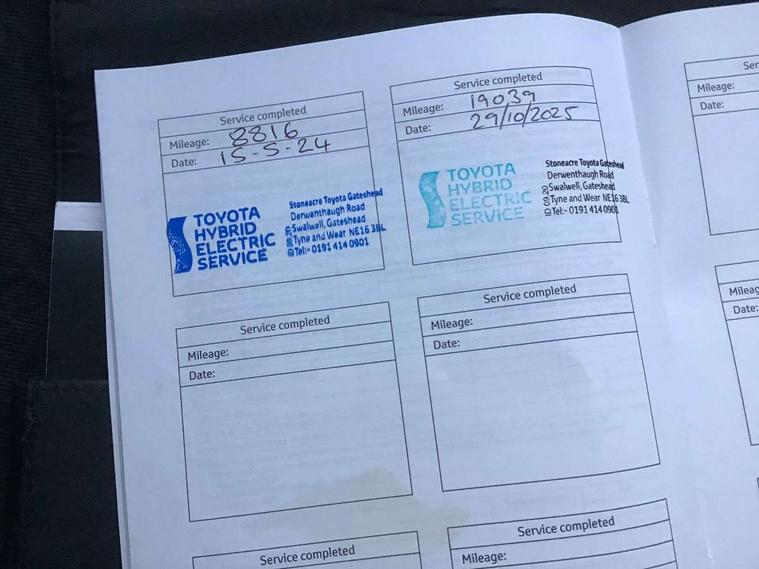 Service completed
Mileage: 8816
Date: 15-5-24
TOYOTA
HYBRID
ELECTRIC
SERVICE
Stoneacre Toyota Gateshead
Derwenthaugh Road
Swalwell, Gateshead
Tyne and Wear NE16 3BL
Tel:- 0191 414 0901
Service completed
Mileage: 19039
Date: 29/10/2025
TOYOTA
HYBRID
ELECTRIC
SERVICE
Stoneacre Toyota Gateshead
Derwenthaugh Road
Swalwell, Gateshead
Tyne and Wear NE16 3BL
Tel:- 0191 414 0901
Ser
Mileage:
Date:
Service completed
Mileage:
Date:
Service completed
Mileage:
Date:
Mileag
Date:
Service completed
Service completed
Mileage: